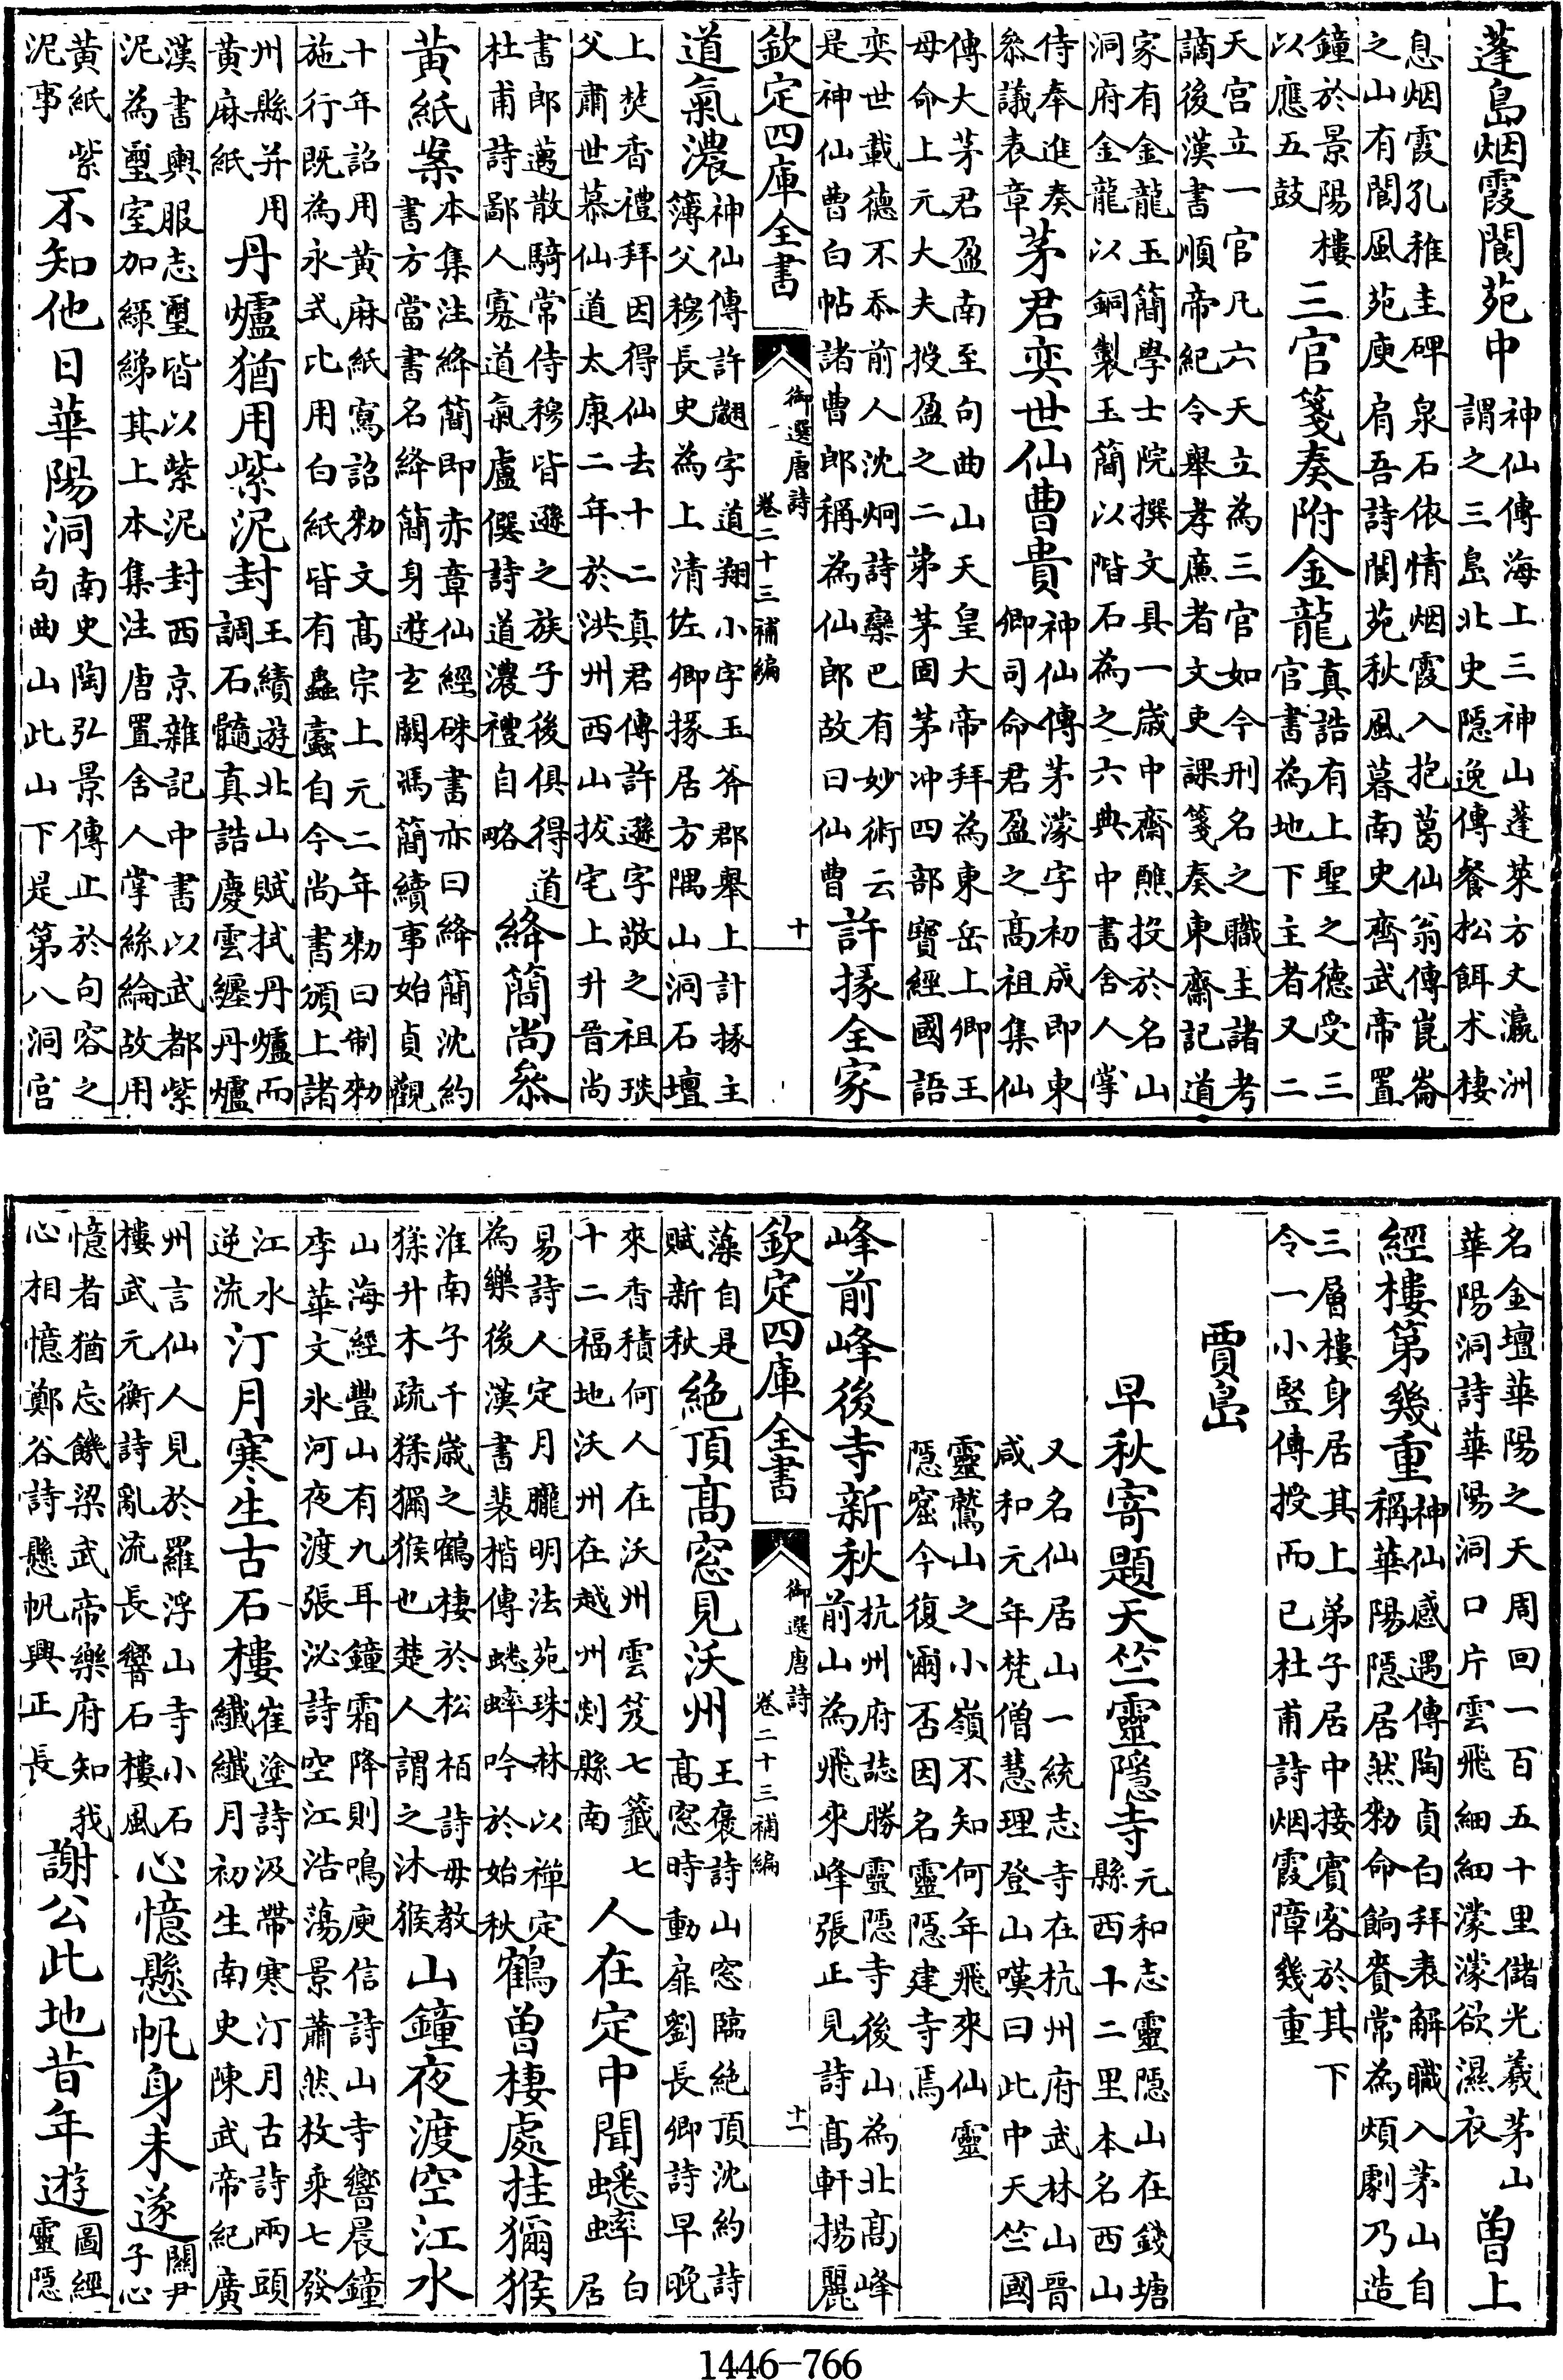 蓬島烟霞閬苑中
神仙傳海上三神山蓬萊方丈瀛洲
謂之三島北史隱逸傳餐松餌术棲
息烟霞孔稚圭碑泉石依情烟霞入抱葛仙翁傳崑崙
之山有閬風苑庾肩吾詩閬苑秋風暮南史齊武帝置
鐘於景陽樓
以應五鼓
三官箋奏附金龍
真誥有上聖之德受三
官書為地下主者又二
天宮立一官凡六天立為三官如今刑名之職主諸考
謫後漢書順帝紀令舉孝廉者文吏課箋奏東齋記道
家有金龍玉簡學士院撰文具一歲中齋醮投於名山
洞府金龍以銅製玉簡以階石為之六典中書舍人掌
侍奉進奏
叅議表章
茅君奕世仙曹貴
神仙傳茅濛字初成即東
卿司命君盈之高祖集仙
傳大茅君盈南至句曲山天皇大帝拜為東岳上卿王
母命上元大夫授盈之二弟茅固茅冲四部寶經國語
奕世載德不忝前人沈炯詩欒巴有妙術云
是神仙曹白帖諸曹郎稱為仙郎故曰仙曹
許掾全家
欽定四庫全書
御選唐詩
卷二十三補編
十
道氣濃
神仙傳許翽字道翔小字玉斧郡舉上計掾主
簿父穆長史為上清佐卿掾居方隅山洞石壇
上焚香禮拜因得仙去十二真君傳許遜字敬之祖琰
父肅世慕仙道太康二年於洪州西山拔宅上升晉尚
書郎邁散騎常侍穆皆遜之族子後俱得道
杜甫詩鄙人寡道氣盧僎詩道濃禮自略
絳簡尚叅
黃紙案
本集注絳簡即赤章仙經硃書亦曰絳簡沈約
書方當書名絳簡身遊玄闕馮簡續事始貞觀
十年詔用黃麻紙寫詔勑文高宗上元二年勑曰制勑
施行既為永式比用白紙皆有蟲蠹自今尚書頒上諸
州縣并用
黃麻紙
丹爐猶用紫泥封
王績遊北山賦拭丹爐而
調石髓真誥慶雲纒丹爐
漢書輿服志璽皆以紫泥封西京雜記中書以武都紫
泥為璽室加綠綈其上本集注唐置舍人掌絲綸故用
黃紙紫
泥事
不知他日華陽洞
南史陶弘景傳止於句容之
句曲山此山下是第八洞宮
名金壇華陽之天周回一百五十里儲光羲茅山
華陽洞詩華陽洞口片雲飛細細濛濛欲濕衣
曾上
經樓第幾重
神仙感遇傳陶貞白拜表解職入茅山自
稱華陽隱居然勑命餉賚常為煩劇乃造
三層樓身居其上弟子居中接賓客於其下
令一小豎傳授而已杜甫詩烟霞障幾重
賈島
早秋寄題天竺靈隱寺
元和志靈隱山在錢塘
縣西十二里本名西山
又名仙居山一統志寺在杭州府武林山晉
咸和元年梵僧慧理登山嘆曰此中天竺國
靈鷲山之小嶺不知何年飛來仙靈
隱窟今復爾否因名靈隱建寺焉
峰前峰後寺新秋
杭州府誌勝靈隱寺後山為北高峰
前山為飛來峰張正見詩高軒揚麗
欽定四庫全書
御選唐詩
卷二十三補編
十一
藻自是
賦新秋
絕頂高窓見沃州
王褒詩山窓臨絕頂沈約詩
高窓時動扉劉長卿詩早晚
來香積何人在沃州雲笈七籤七
十二福地沃州在越州剡縣南
人在定中聞蟋蟀
白
居
易詩人定月朧明法苑珠林以禪定
為樂後漢書裴楷傳蟋蟀吟於始秋
鶴曾棲處挂獼猴
淮南子千歲之鶴棲於松栢詩毋教
猱升木疏猱獼猴也楚人謂之沐猴
山鐘夜渡空江水
山海經豐山有九耳鐘霜降則鳴庾信詩山寺響晨鐘
李華文氷河夜渡張泌詩空江浩蕩景蕭然枚乘七發
江水
逆流
汀月寒生古石樓
崔塗詩汲帶寒汀月古詩兩頭
纖纖月初生南史陳武帝紀廣
州言仙人見於羅浮山寺小石
樓武元衡詩亂流長響石樓風
心憶懸帆身未遂
關尹
子心
憶者猶忘饑梁武帝樂府知我
心相憶鄭谷詩懸帆興正長
謝公此地昔年遊
圖經
靈隱
1446-766